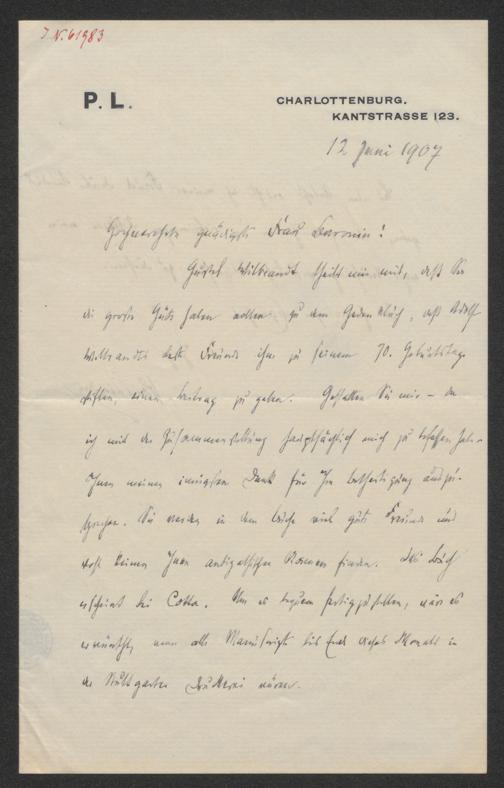 J.N. 61983
P. L.
CHARLOTTENBURG.
KANTSTRASSE 123.
12 Juni 1907
Hochverehrte gnädigste Frau Baronin!
Gustel Wilbrandt theilt mir mit, daß Sie
die große Güte haben wollen zu dem Gedenkbuch, das Adolf
Wilbrandts beste Freunde ihm zu seinem 70. Geburtstage
stiften, einen Beitrag zu geben. Gestatten Sie mir – der
ich mit der Zusammenstellung hauptsächlich mich zu befassen habe –
Ihnen meinen innigsten Dank für Ihre Betheiligung auszu-
sprechen. Sie werden in dem Buche viel gute Freunde und
wohl keinen Ihnen antipathischen Namen finden. Das Buch
erscheint bei Cotta. Um es bequem fertigzustellen, wäre es
erwünscht, wenn alle Manuscripte bis Ende dieses Monats in
der Stuttgarter Druckerei wären.